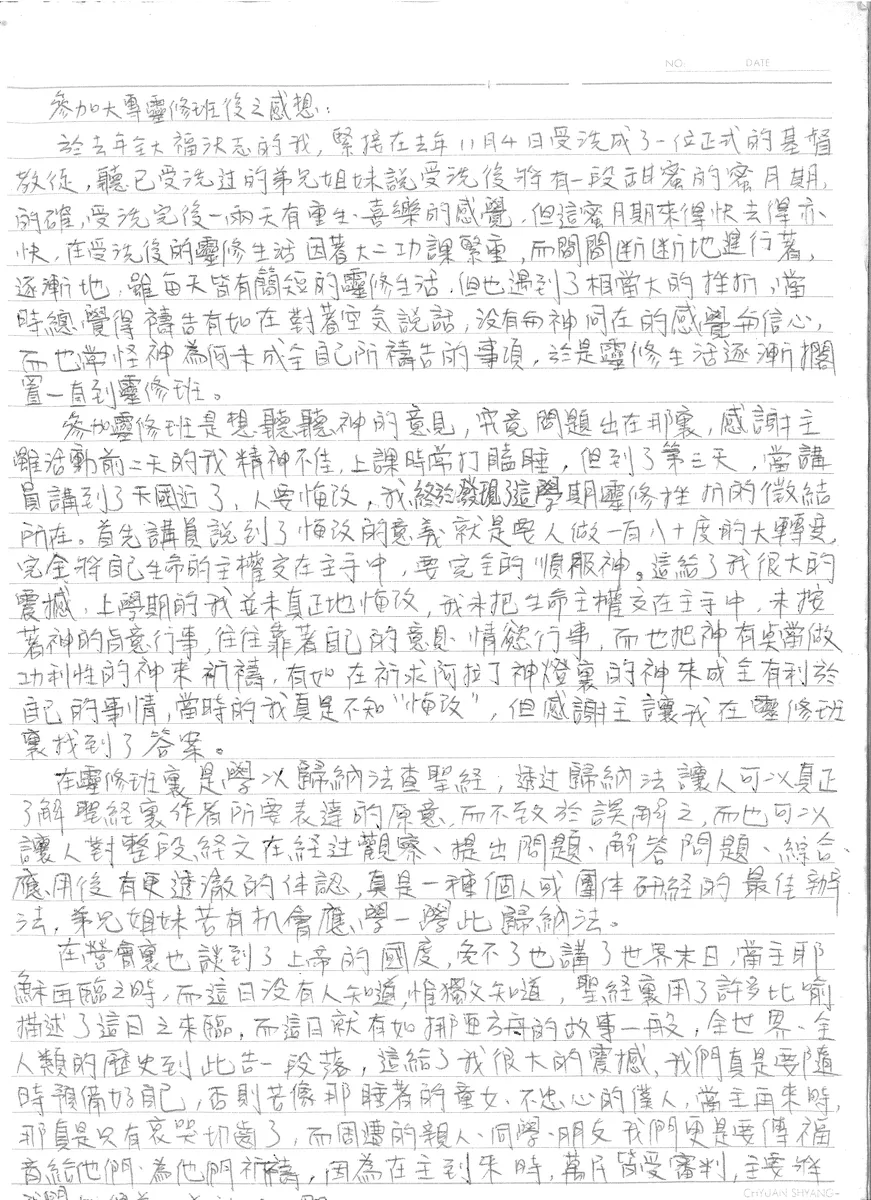 NO: DATE
參加大專靈修班後之感想：
於去年全大福決志的我，緊接在去年11月4日受洗成了一位正式的基督
教徒，聽已受洗过的弟兄姐妹說受洗後將有一段甜蜜的蜜月期，
的確，受洗完後一兩天有重生、喜樂的感覺，但這蜜月期來得快去得亦
快，在受洗後的靈修生活因著大二功課繁重，而間間断断地進行著，
逐漸地，雖每天皆有簡短的靈修生活，但也遇到了相當大的挫折，當
時總覺得禱告有如在對著空気說話，没有與神同在的感覺與信心，
而也常怪神為何未成全自己所禱告的事項，於是靈修生活逐漸擱
置一直到靈修班。
參加靈修班是想聽聽神的意見，究竟問題出在那裏，感謝主
雖活動前二天的我精神不佳，上課時常打瞌睡，但到了第三天，當講
員講到了天國近了，人要悔改，我終於發現了這學期靈修挫折的徵結
所在。首先講員說到了悔改的意義就是要人做一百八十度的大轉变
完全將自己生命的主權交在主手中，要完全的順服神。這給了我很大的
震撼，上學期的我並未真正地悔改，我未把生命主權交在主手中，未按
著神的旨意行事，往往靠著自己的意見、情慾行事，而也把神有奌當做
功利性的神來祈禱，有如在祈求阿拉丁神燈裏的神來成全有利於
自己的事情，當時的我真是不知“悔改”，但感謝主讓我在靈修班
裏找到了答案。
在靈修班裏是學以歸納法查聖経；透过歸納法讓人可以真正
了解聖経裏作者所要表達的原意，而不致於誤解之，而也可以
讓人對整段経文在経过觀察、提出問題、解答問題、綜合、
應用後有更透澈的体認，真是一種個人或團体研経的最佳辦
法，弟兄姐妹若有机會應學一學此歸納法。
在營會裏也談到了上帝的國度，免不了也講了世界末日，當主耶
穌再臨之時，而這日没有人知道，惟獨父知道，聖経裏用了許多比喻
描述了這日之來臨，而這日就有如挪亞方舟的故事一般，全世界、全
人類的歷史到此告一段落，這給了我很大的震撼，我們真是要隨
時預備好自己，否則若像那睡著的童女、不忠心的僕人，當主再来時，
那真是只有哀哭切齒了，而周遭的親人、同學、朋友我們更是要傳福
音給他們、為他們祈禱，因為在主到來時，萬民皆受審判，主要將
CHYUAN SHYANG